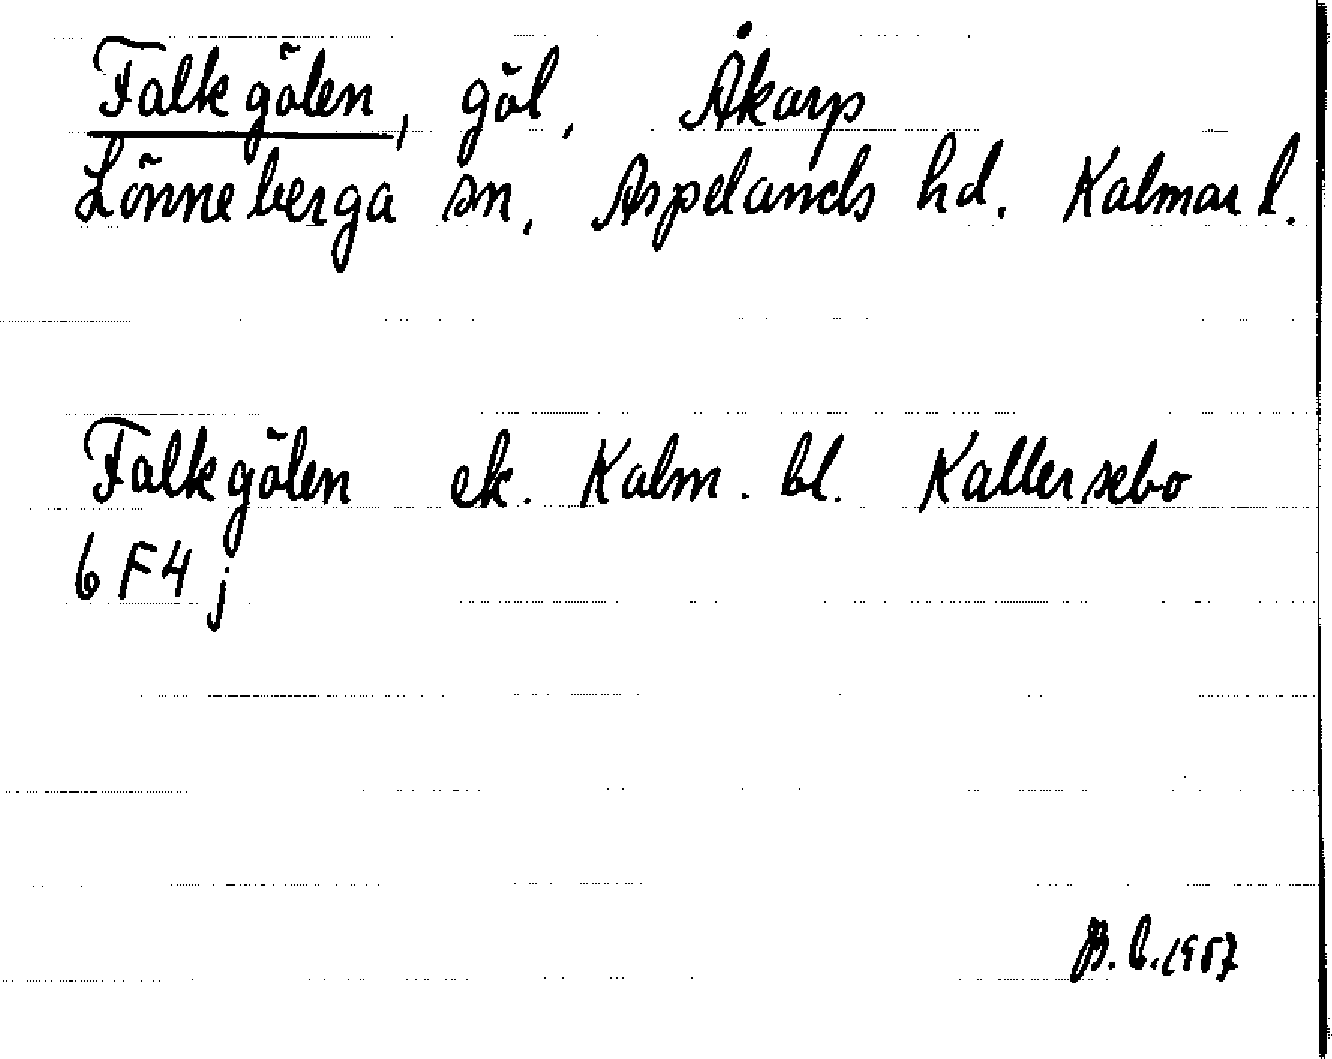 Falkgölen, göl, Åkarp
Lönneberga sn, Aspelands hd. Kalmar l.
Falkgölen ek. Kalm. bl. Kallersebo
6 F4 j
B. L. 1957